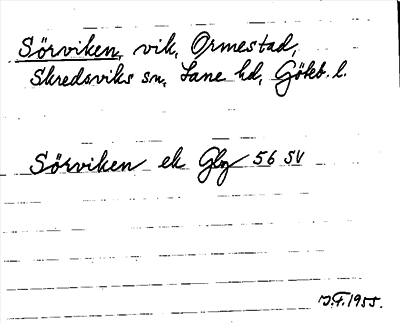 Sörviken, vik, Ormestad,
Skredsviks sn, Lane hd, Göteb. l.
Sörviken ek Glbg 56 SV
J.F. 1955.